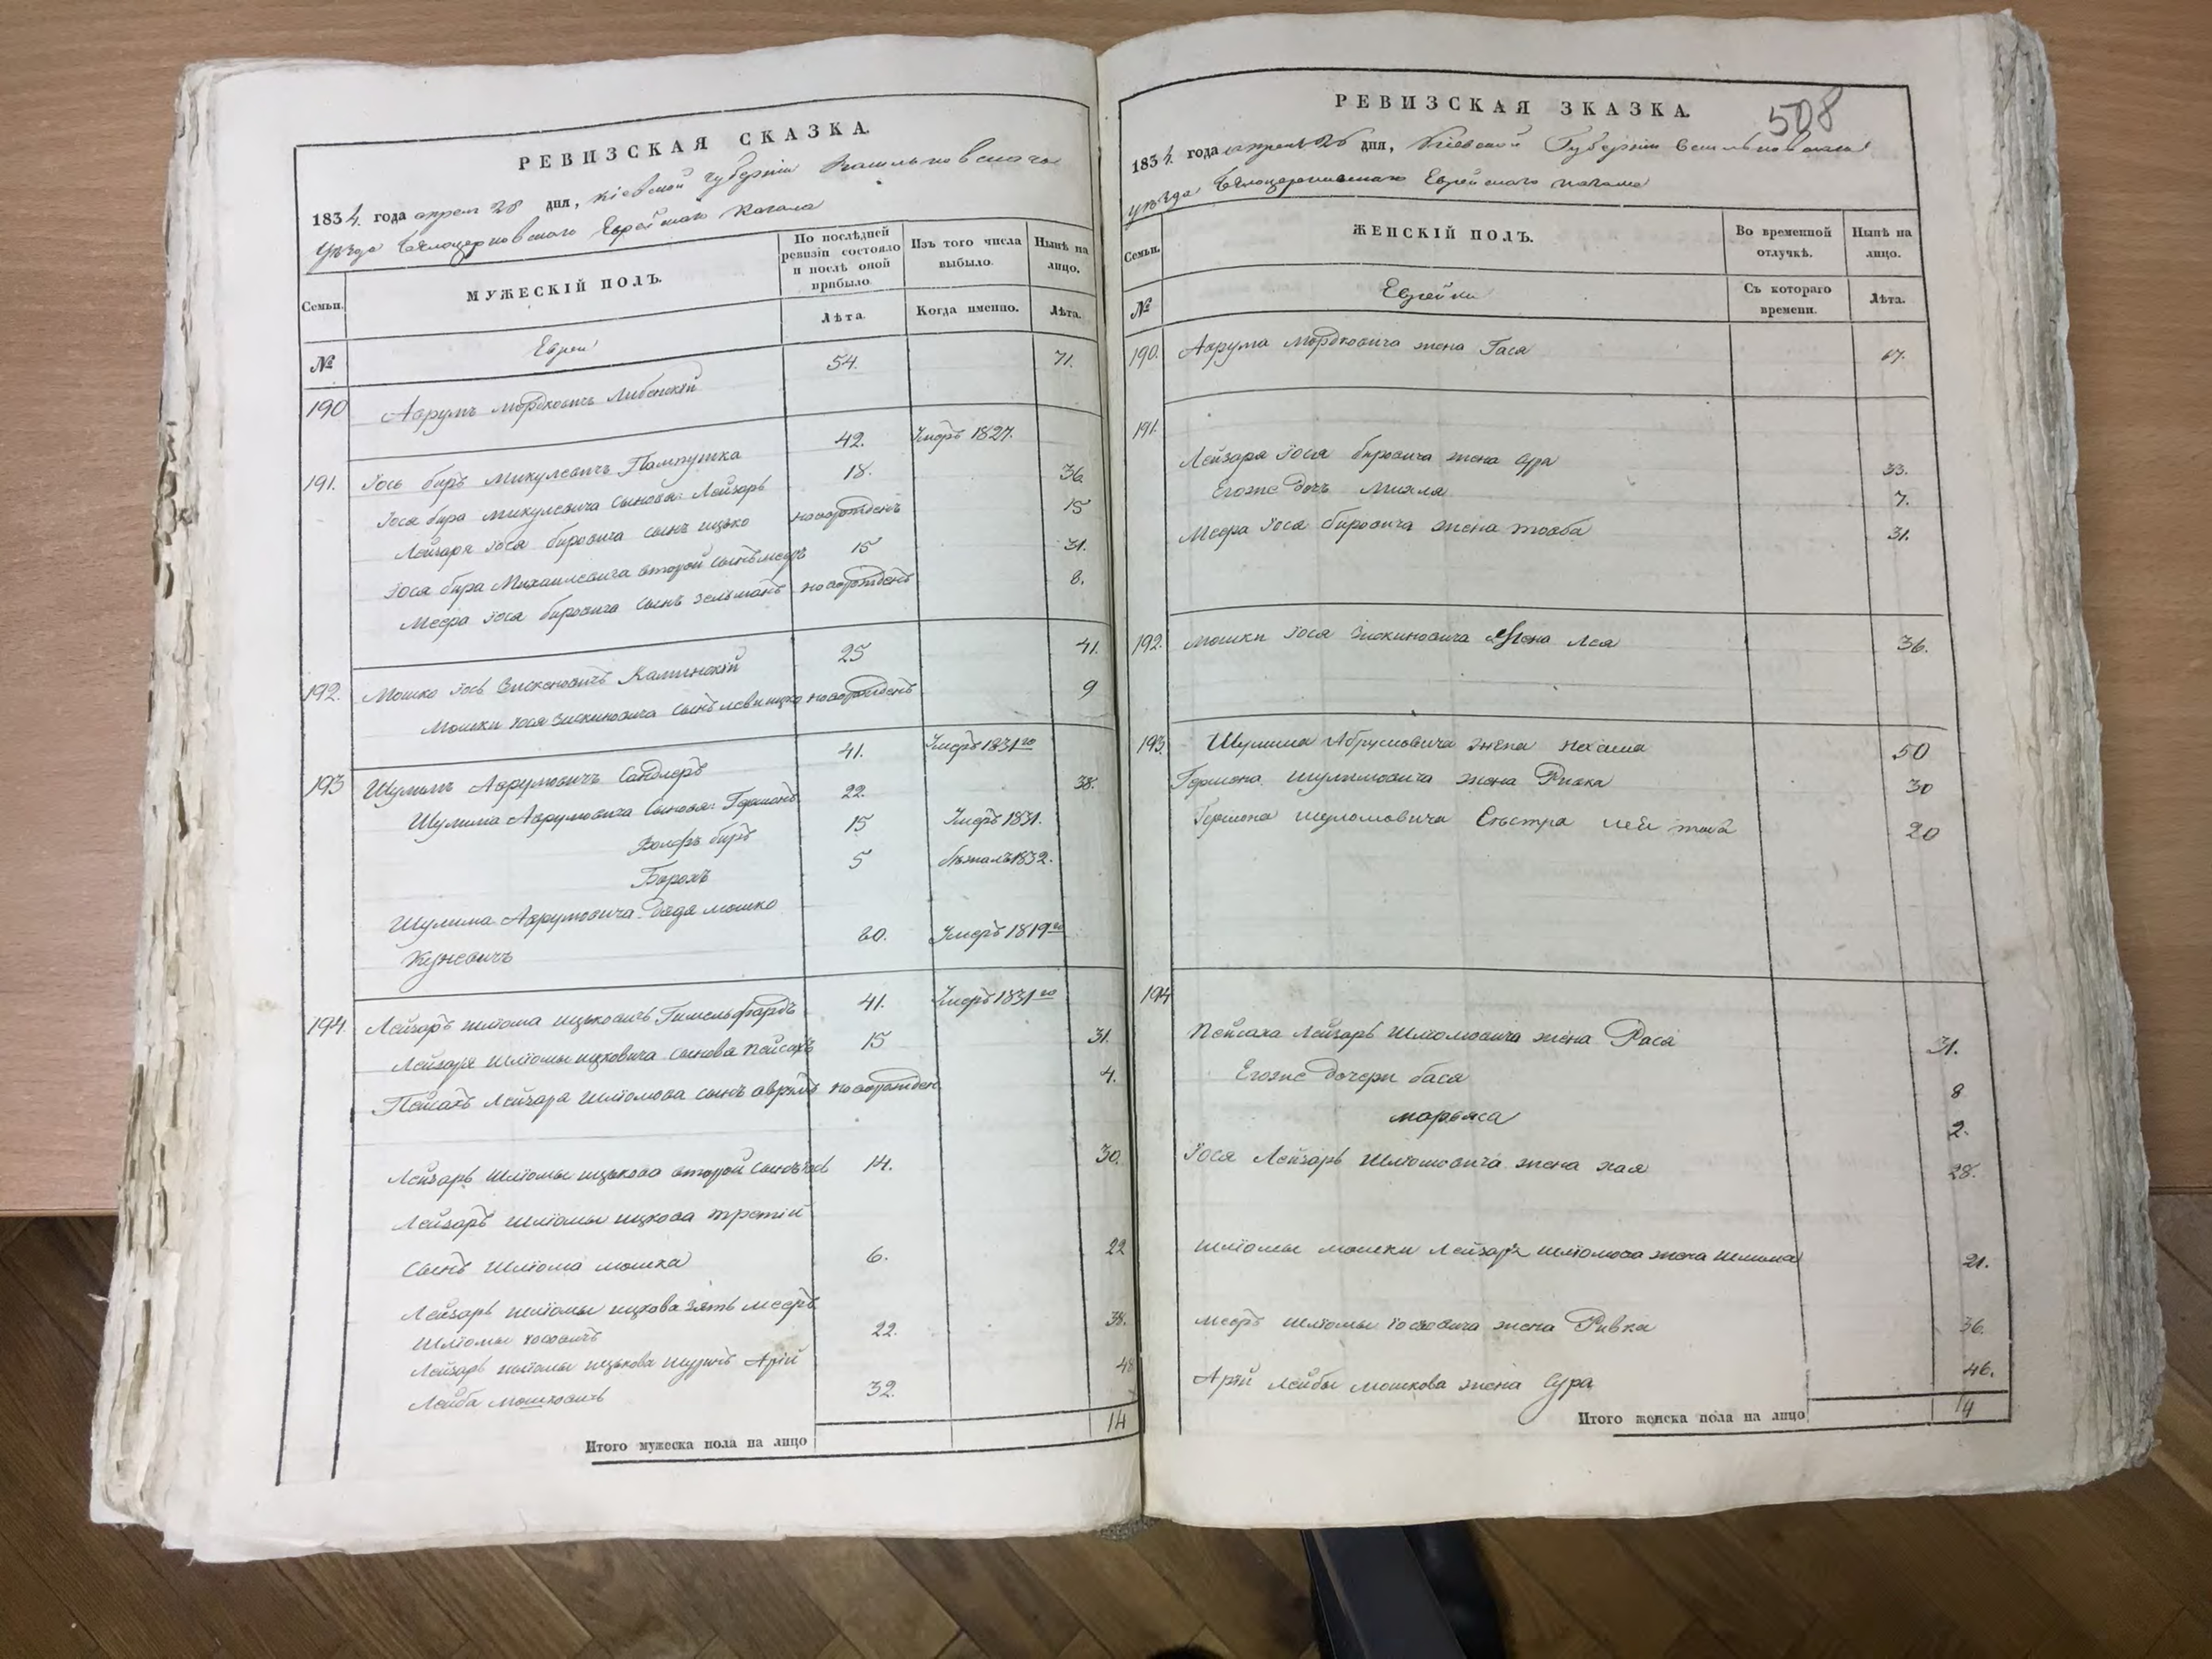 РЕВИЗСКАЯ СКАЗКА.
1834. года апреля 28 дня, Кіевской губерніи Васильковскаго
уѣзда Бѣлоцерковскаго Еврейскаго Кагала
Семьи.
МУЖЕСКІЙ ПОЛЪ.
По послѣдней ревизіи состояло и послѣ оной прибыло.
Изъ того числа выбыло.
Нынѣ на лицо.
№
Евреи
Лѣта.
Когда именно.
Лѣта.
190 Аврумъ Мордковичъ Либенскій 54. 71.
191. Іось биръ Микулевичъ Пампушка 42. Умеръ 1827.
Іося бира Микулевича сыновя: Лейзоръ 18. 36.
Лейзоря Іося бировича сынъ ицько новорожденъ 15
Іося бира Михаилевича второй сынъ мееръ 15 31.
Меера Іося бировича сынъ зельманъ новорожденъ 8.
192. Мошко Іось Зискеновичъ Калинскій 25 41.
Мошки Іося Зискиновича сынъ леви ицко новорожденъ 9
193 Шулимъ Аврумовичъ Сандлеръ 41. Умеръ 1831го
Шулима Аврумовича сыновя: Гершонъ 22. 38.
Волфъ биръ 15 Умеръ 1831.
Борохъ 5 бѣжалъ 1832.
Шулима Аврумовича дядя мошко 60. Умеръ 1819го
194. Лейзоръ шліома ицьковичъ Гимельфарбъ 41. Умеръ 1831го
Лейзоря Шліомы ицковича сынова Пейсахъ 15 31.
Пейсахъ Лейзора Шліомова сынъ аврумъ новорожден 4.
Лейзоръ Шліомы ицькова второй сынъ Іось 14. 30.
Лейзоръ шліомы ицкова третій
сынъ шліома мошка 6. 22
Лейзоръ шліомы ицкова зять мееръ
Шліомы Іосовичъ 22. 38.
Лейзоръ шліомы ицькова шуринъ Арій
Лейба мошковичъ 32. 48
Итого мужеска пола на лицо 14
РЕВИЗСКАЯ ЗКАЗКА.
508
1834. года апреля 28 дня, Кіевской Губерніи Васильковскаго
уѣзда Бѣлоцерковскаго Еврейскаго кагала
Семьи.
ЖЕНСКІЙ ПОЛЪ.
Во временной отлучкѣ.
Нынѣ на лицо.
№
Еврейки
Съ котораго времени.
Лѣта.
190. Аврума Мордковича жена Гася 67.
191.
Лейзоря Іося бировича жена Сура 33.
Егоже дочь Михля 7.
Меера Іося бировича жена товба 31.
192. Мошки Іося Зискиновича жена Лея 36.
193. Шулима Абрумовича жена нехама 50
Гершона шулимовича жена Ривка 30
Гершона шуломовича сестра 20
194
Пейсаха Лейзоръ Шліомовича жена Рася 31.
Егоже дочери бася 8
марьяса 2.
Іося Лейзоръ Шліомовича жена хая 28.
Шліомы мошки Лейзора шліомова жена 21.
Меоръ шліомы Іосковича жена Ривка 36.
Арій Лейбы мошкова жена Сура 46.
Итого женска пола на лицо 14